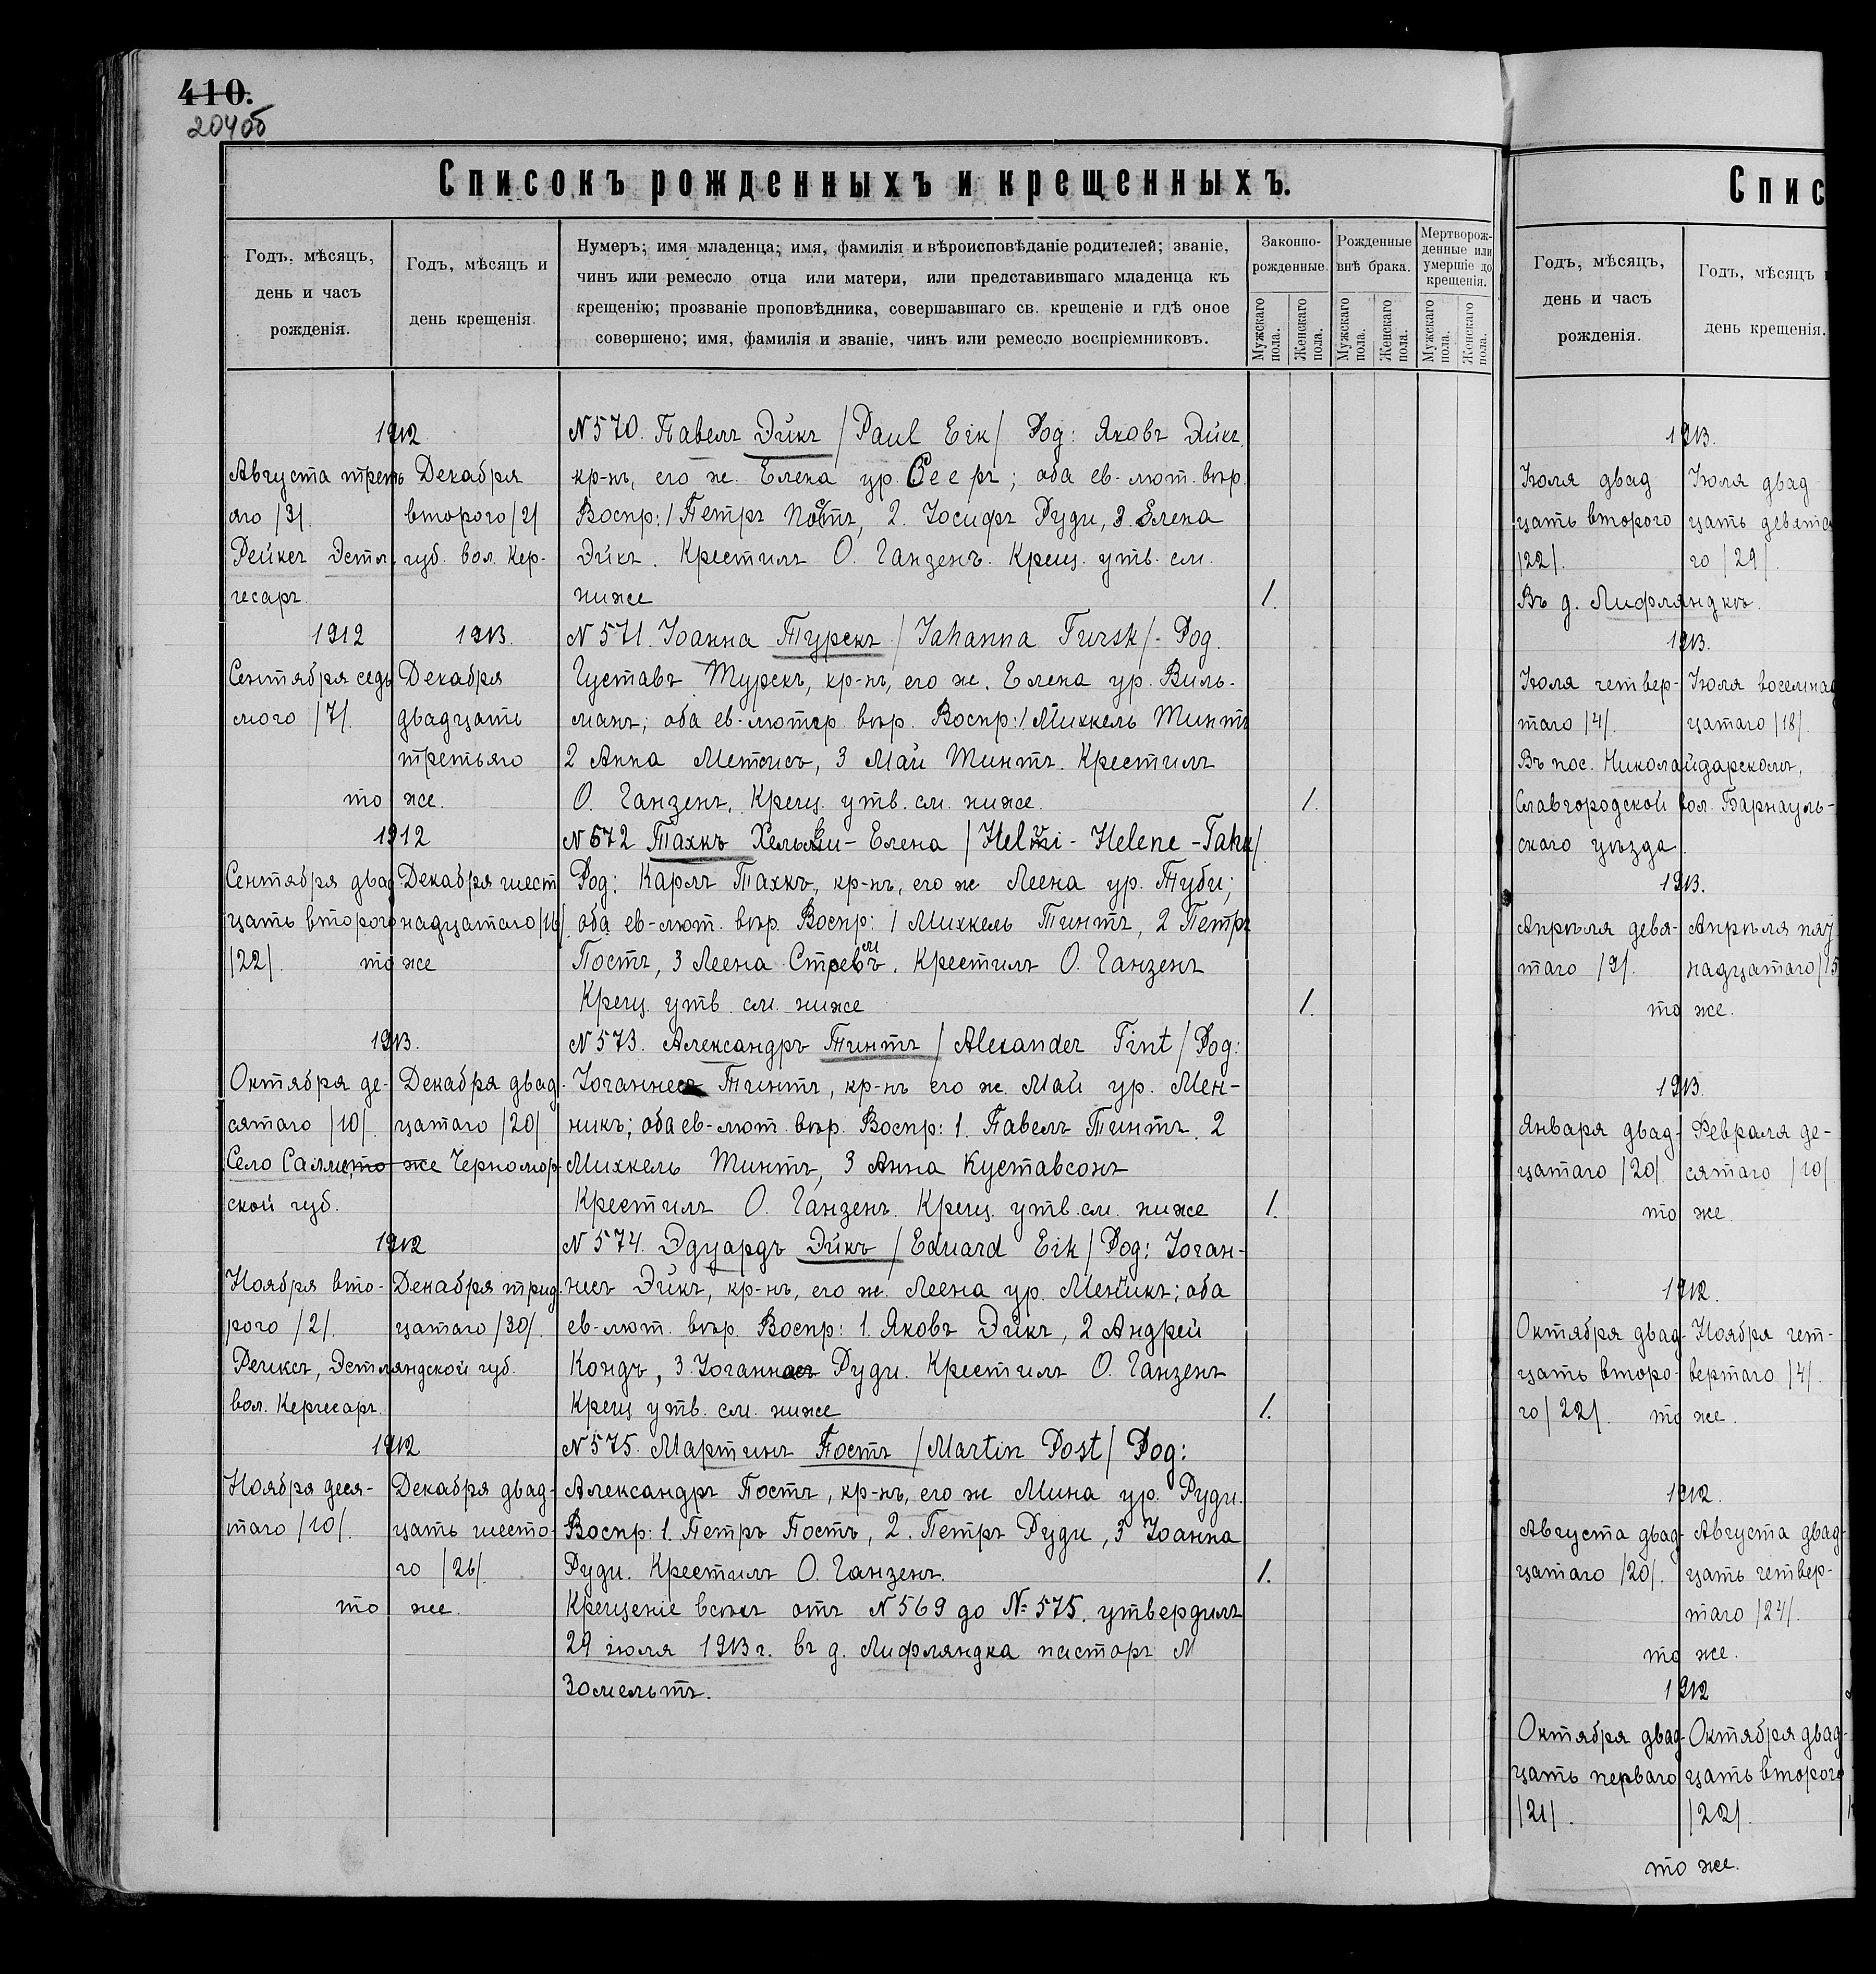 410.
204об
Списокъ рожденныхъ и крещенныхъ.
Годъ, мѣсяцъ,
день и часъ
рожденія.
Годъ, мѣсяцъ и
день крещенія.
Нумеръ; имя младенца; имя, фамилія и вѣроисповѣданіе родителей; званіе,
чинъ или ремесло отца или матери, или представившаго младенца къ
крещенію; прозваніе проповѣдника, совершавшаго св. крещеніе и гдѣ оное
совершено; имя, фамилія и званіе, чинъ или ремесло воспріемниковъ.
Законно-
рожденные.
Рожденные
внѣ брака.
Мертворож-
денные или
умершіе до
крещенія.
Мужскаго пола.
Женскаго пола.
Мужскаго пола.
Женскаго пола.
Мужскаго пола.
Женскаго пола.
1912
Августа треть
яго /3/.
Рейкет Эстл.
гесаръ.
Декабря
второго /2/
губ. вол. Кер-
N 570. Павелъ Эйкъ /Paul Eik/ Род: Яковъ Эйкъ.
кр-нъ, его ж. Елена ур. Сееръ; оба ев-лют. вѣр.
Воспр: 1 Петръ Постъ, 2. Іосифъ Руди, 3. Елена
Эйкъ. Крестилъ О. Ганзенъ. Крещ. утв. см.
ниже
1.
1912
Сентября седь
мого /7/.
1913.
Декабря
двадцать
третьяго
то же.
N 571. Іоанна Турскъ /Johanna Tursk/. Род.
Густавъ Турскъ, кр-нъ, его ж. Елена ур. Виль-
манъ; оба ев-лютер. вѣр. Воспр: 1 Михкель Тинтъ
2 Анна Метсисъ, 3 Май Тинтъ. Крестилъ
О. Ганзенъ. Крещ. утв. см. ниже.
1.
1912
Сентября двад
цать второго
/22/.
Декабря шест
надцатаго /16/.
то же
N 572 Тахкъ Хельми-Елена /Helmi-Helene-Tahk/
Род: Карлъ Тахкъ, кр-нъ, его ж Леена ур. Туби;
оба ев-лют. вѣр. Воспр: 1 Михкель Тинтъ, 2 Петръ
Постъ, 3 Леена. Крестилъ О. Ганзенъ
Крещ. утв. см. ниже
1.
1913.
Октября де-
сятаго /10/.
Село Салме, то же Черномор-
ской губ.
Декабря двад-
цатаго /20/.
N 573. Александръ Тинтъ /Alexander Tint/ Род:
Іоганнесъ Тинтъ, кр-нъ его ж. Май ур. Мен-
никъ; оба ев-лют. вѣр. Воспр: 1. Павелъ Тинтъ. 2
Михкель Тинтъ, 3 Анна Куставсонъ
Крестилъ О. Ганзенъ. Крещ. утв. см. ниже
1.
1912
Ноября вто-
рого /2/.
Рейкет, Эстляндской губ.
вол. Кергесаръ.
Декабря трид-
цатаго /30/.
N 574. Эдуардъ Эйкъ /Eduard Eik/ Род: Іоган-
несъ Эйкъ, кр-нъ, его ж. Леена ур. Менникъ; оба
ев-лют. вѣр. Воспр: 1. Яковъ Эйкъ, 2 Андрей
Кондъ, 3. Іоганнесъ Руди. Крестилъ О. Ганзенъ
Крещ утв. см. ниже
1.
1912
Ноября деся-
таго /10/.
Декабря двад-
цать шесто-
го /26/.
то же.
N 575. Мартинъ Постъ /Martin Post/ Род:
Александръ Постъ, кр-нъ, его ж Мина ур. Руди.
Воспр: 1. Петръ Постъ, 2. Петръ Руди, 3 Іоанна
Руди. Крестилъ О. Ганзенъ.
1.
Крещеніе всѣхъ отъ N 569 до № 575. утвердилъ
29 іюля 1913 г. въ д. Лифляндка пасторъ М
Зомельтъ.
Спис
Годъ, мѣсяцъ,
день и часъ
рожденія.
Годъ, мѣсяцъ и
день крещенія.
1913.
Іюля двад
цать второго
/22/.
Іюля двад
цать девята
го /29/.
Въ д. Лифляндкѣ.
1913.
Іюля четвер-
таго /4/.
Іюля восемнад
цатаго /18/.
Въ пос. Николайдарскомъ,
Славгородской вол. Барнауль-
скаго уѣзда.
1913.
Апрѣля девя-
таго /9/.
Апрѣля пят
надцатаго /15
то же.
1913.
Января двад-
цатаго /20/.
Февраля де-
сятаго /10/
то же.
1912.
Октября двад-
цать второ-
го /22/.
Ноября чет-
вертаго /4/.
то же.
1912.
Августа двад-
цатаго /20/.
Августа двад-
цать четвер-
таго /24/.
то же.
1912
Октября двад-
цать перваго
/21/.
Октября двад-
цать второго
/22/.
то же.